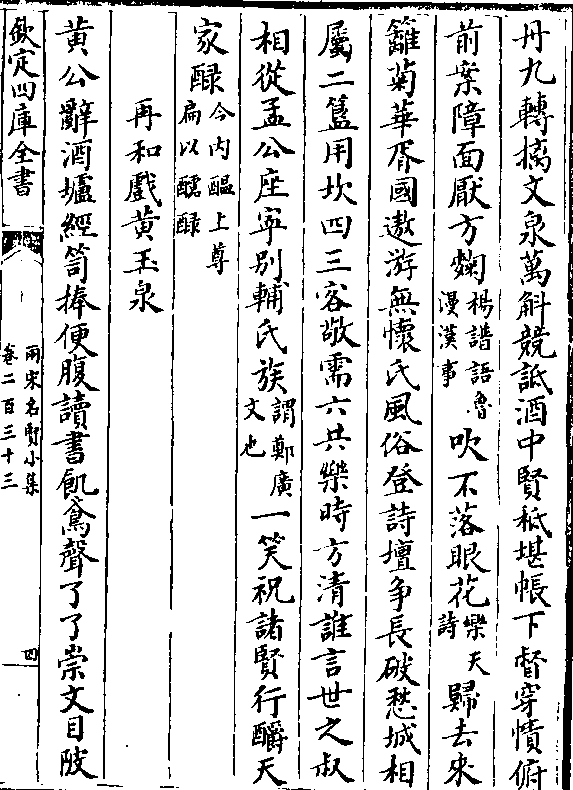 丹九轉摛文泉萬斛競詆酒中賢秪堪帳下督穿幘俯
前案障面厭方麴楊譜語魯漫漢事吹不落眼花樂天詩歸去來
籬菊華胥國遨游無懷氏風俗登詩壇争長破愁城相
屬二簋用坎四三客敬需六共樂時方清誰言世之叔
相從孟公座寜别輔氏族謂鄭廣文也一笑祝諸賢行釂天
家醁今内醖上尊扁以醹醁
再和戲黄玉泉
黄公辭酒壚經笥捧便腹讀書飢鳶聲了了崇文目陂
欽定四庫全書
兩宋名賢小集
卷二百三十三
四